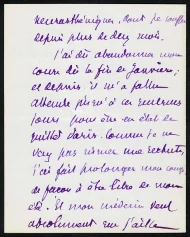 neurasthénique, dont je souffre
depuis plus de dix mois.
J'ai dû abandonner mon
cours dès la fin de Janvier;
et depuis, il m'a fallu
attendre jusqu'à ces derniers
jours pour être en état de
quitter Paris. Comme je ne
veux pas risquer une rechute,
j'ai fait prolonger mon congé
de façon à être libre
été. Et mon médecin veut
absolument que j'aille